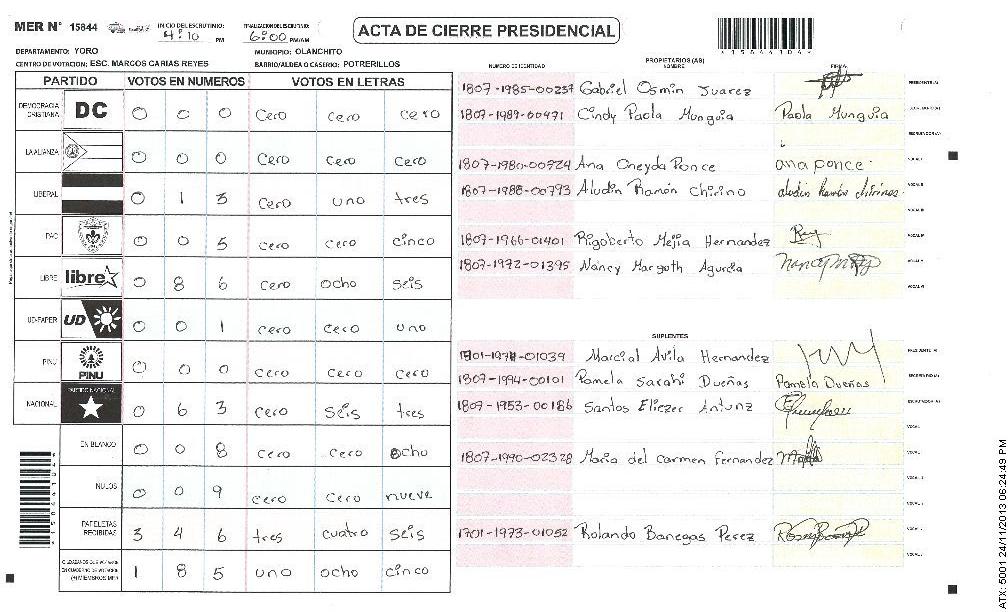 MER N° 15844 INICIO DEL ESCRUTINIO: 4:10 PM FINALIZACION DEL ESCRUTINIO: 6:00 PM/AM
ACTA DE CIERRE PRESIDENCIAL
DEPARTAMENTO: YORO MUNICIPIO: OLANCHITO
CENTRO DE VOTACION: ESC. MARCOS CARIAS REYES BARRIO/ALDEA O CASERIO: POTRERILLOS
PARTIDO VOTOS EN NUMEROS VOTOS EN LETRAS
DEMOCRACIA CRISTIANA DC 0 0 0 cero cero cero
LA ALIANZA 0 0 0 cero cero cero
LIBERAL 0 1 3 cero uno tres
PAC 0 0 5 cero cero cinco
LIBRE libre 0 8 6 cero ocho seis
UD-FAPER UD 0 0 1 cero cero uno
PINU PINU 0 0 0 cero cero cero
NACIONAL PARTIDO NACIONAL 0 6 3 cero seis tres
EN BLANCO 0 0 8 cero cero ocho
NULOS 0 0 9 cero cero nueve
PAPELETAS RECIBIDAS 3 4 6 tres cuatro seis
(+) MIEMBROS MER 1 8 5 uno ocho cinco
PROPIETARIOS (AS)
NUMERO DE IDENTIDAD NOMBRE FIRMA
1807-1985-00237 Gabriel Osmin Juarez
1807-1989-00471 Cindy Paola Munguia Paola Munguia
1807-1980-00924 Ana Oneyda Ponce ana ponce
1807-1988-00793 Aludin Ramón Chirino
1807-1966-01401 Rigoberto Mejia Hernandez
1807-1972-01395 Nancy Margoth Agurcia
SUPLENTES
Marcial Avila Hernandez
1807-1994-00101 Pamela Sarahi Dueñas Pamela Dueñas
1807-1953-00186 Santos Eliezer Antunz
1807-1990-02328 Maria del Carmen Fernandez
1701-1973-01052 Rolando Banegas Perez
ATX: 5001 24/11/2013 06:24:49 PM